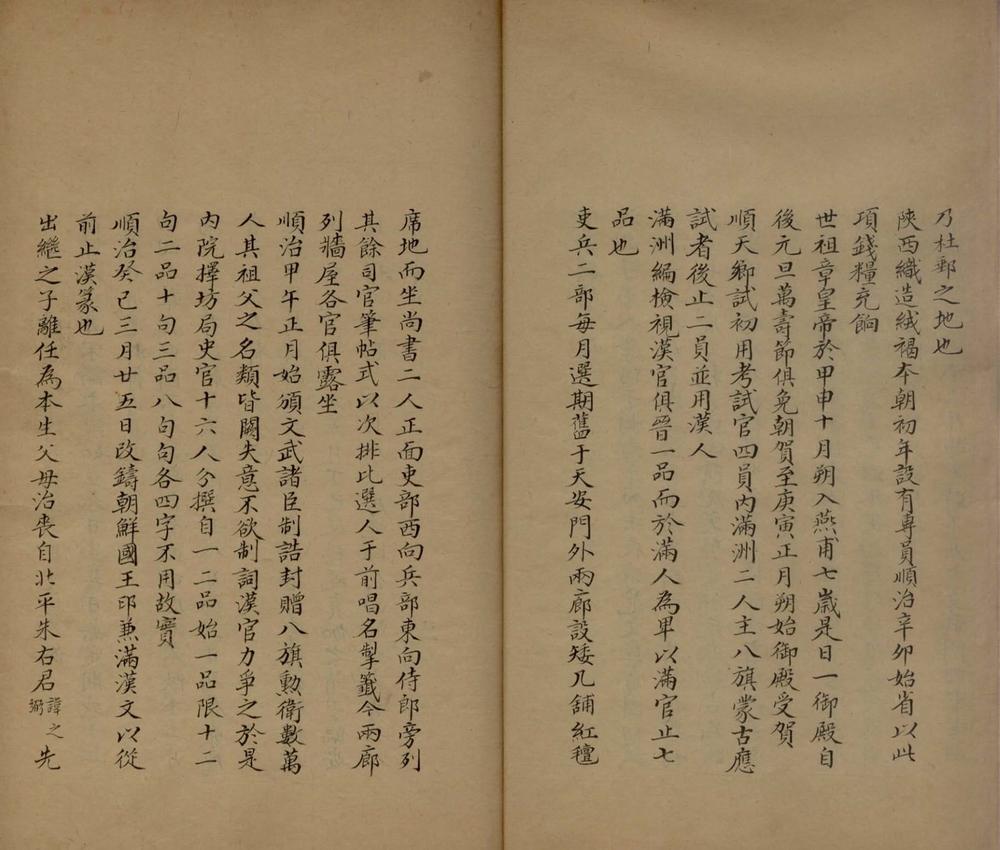 乃杜郵之地也
陜西織造絨褐本朝初年設有專員順治辛卯始省以此
項錢糧充餉
世祖章皇帝於甲申十月朔入燕甫七嵗是日一御殿自
後元旦萬壽節俱免朝賀至庚寅正月朔始御殿受賀
順天鄉試初用考試官四員內滿洲二人主八旗蒙古應
試者後止二員並用漢人
滿洲編檢視漢官俱晉一品而於滿人為卑以滿官止七
品也
吏兵二部每月選期舊于天安門外兩廊設矮几鋪紅氊
席地而坐尚書二人正面吏部西向兵部東向侍郎旁列
其餘司官筆帖式以次排比選人于前唱名掣籤今兩廊
列牆屋各官俱露坐
順治甲午正月始頒文武諸臣制誥封贈八旗勲衛數萬
人其祖父之名類皆闕失意不欲制詞漢官力爭之於是
內院擇坊局史官十六人分撰自一二品始一品限十二
句二品十句三品八句句各四字不用故實
順治癸巳三月廿五日改鑄朝鮮國王印兼滿漢文以從
前止漢篆也
出繼之子離任為本生父母治喪自北平朱右君諱之弼先